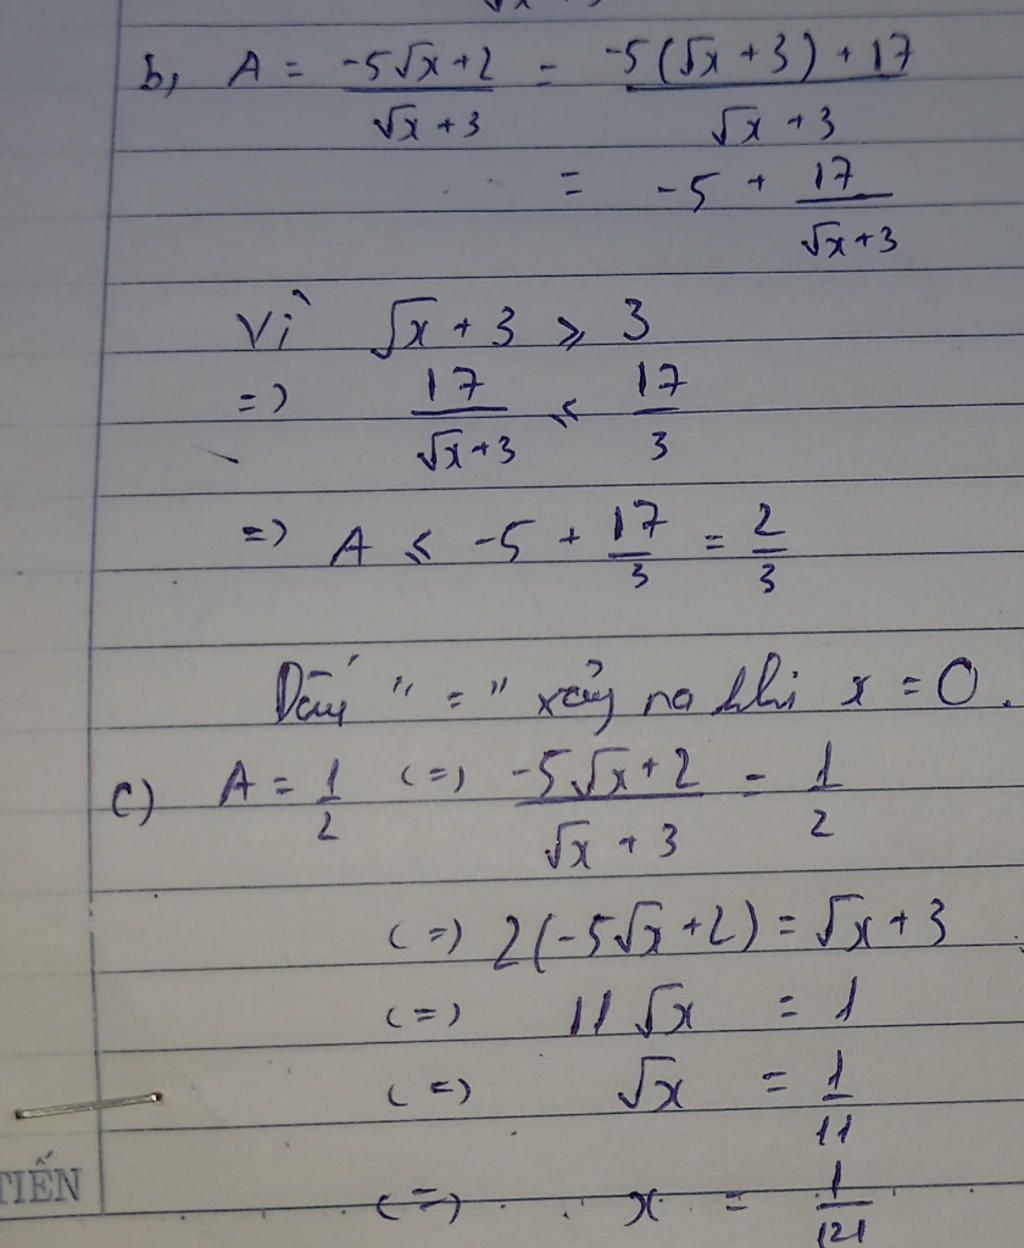 b, A = (-5√x+2)/(√x+3) = (-5(√x+3)+17)/(√x+3)
= -5 + 17/(√x+3)
Vì √x + 3 ⩾ 3
=> 17/(√x+3) ⩽ 17/3
=> A ⩽ -5 + 17/3 = 2/3
Dấu " = " xảy ra khi x = 0.
c) A = 1/2 (=) (-5√x+2)/(√x+3) = 1/2
(=) 2(-5√x+2) = √x+3
(=) 11√x = 1
(=) √x = 1/11
TIẾN
(=) x = 1/121